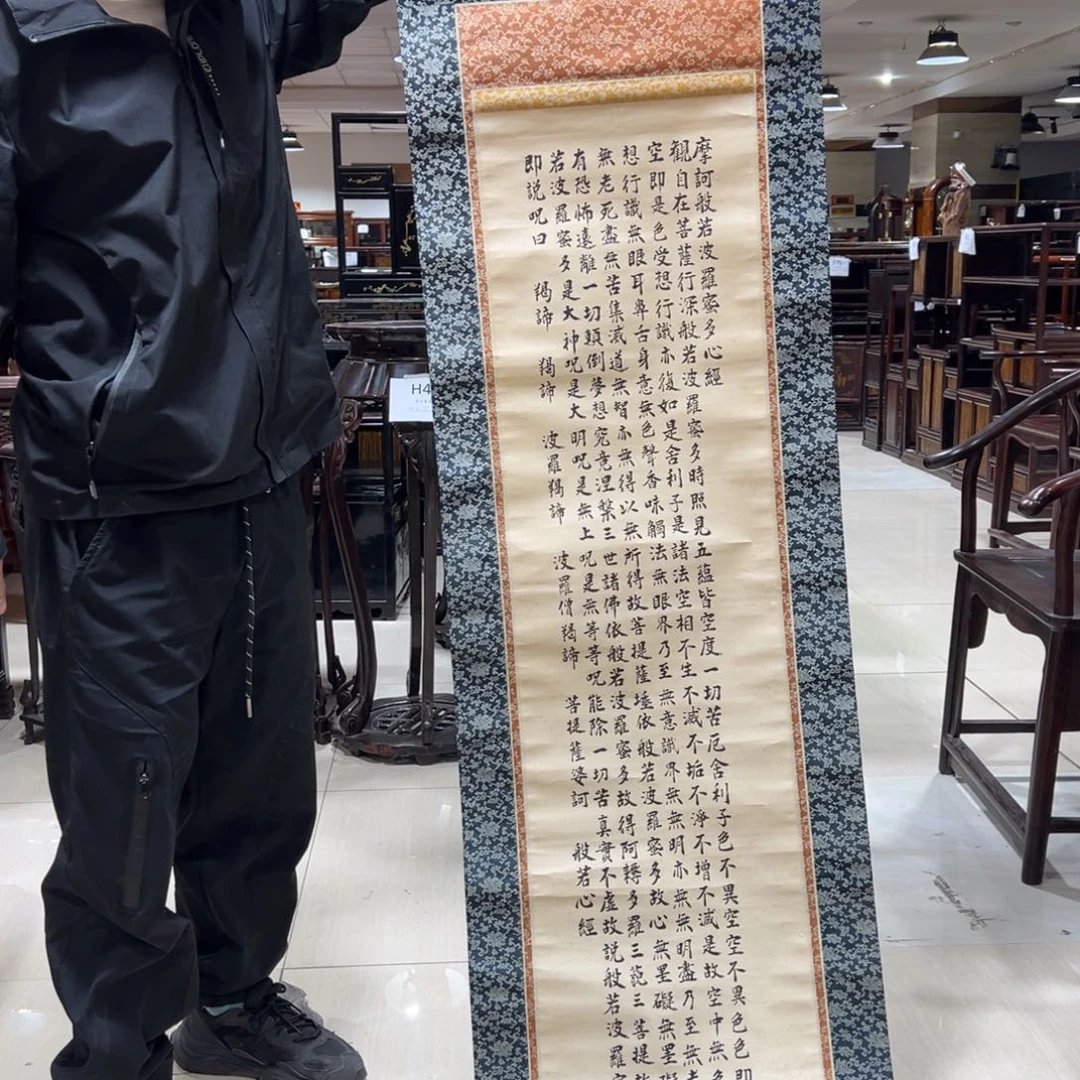 摩訶般若波羅蜜多心經
觀自在菩薩行深般若波羅蜜多時照見五蘊皆空度一切苦厄舍利子色不異空空不異色色即
空即是色受想行識亦復如是舍利子是諸法空相不生不滅不垢不淨不增不滅是故空中無色
想行識無眼耳鼻舌身意無色聲香味觸法無眼界乃至無意識界無無明亦無無明盡乃至無
無老死盡無苦集滅道無智亦無得以無所得故菩提薩埵依般若波羅蜜多故心無罣礙無罣礙
有恐怖遠離一切顛倒夢想究竟涅槃三世諸佛依般若波羅蜜多故得阿耨多羅三藐三菩提故
若波羅蜜多是大神呪是大明呪是無上呪是無等等呪能除一切苦真實不虛故説般若波羅蜜
即説呪曰 羯諦 羯諦 波羅羯諦 波羅僧羯諦 菩提薩婆訶 般若心經
H4